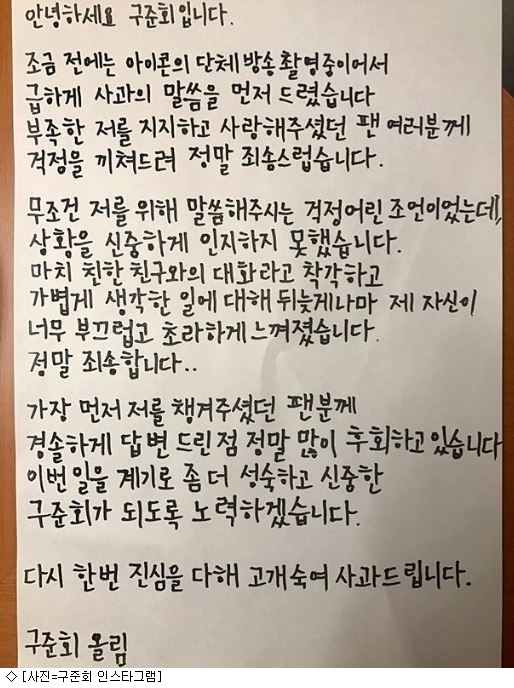 안녕하세요 구준회입니다.
조금 전에는 아이콘의 단체 방송 촬영중이어서
급하게 사과의 말씀을 먼저 드렸습니다
부족한 저를 지지하고 사랑해주셨던 팬 여러분께
걱정을 끼쳐드려 정말 죄송스럽습니다.
무조건 저를 위해 말씀해주시는 걱정어린 조언이었는데,
상황을 신중하게 인지하지 못했습니다.
마치 친한 친구와의 대화라고 착각하고
가볍게 생각한 일에 대해 뒤늦게나마 제 자신이
너무 부끄럽고 초라하게 느껴졌습니다.
정말 죄송합니다..
가장 먼저 저를 챙겨주셨던 팬분께
경솔하게 답변 드린 점 정말 많이 후회하고 있습니다
이번 일을 계기로 좀 더 성숙하고 신중한
구준회가 되도록 노력하겠습니다.
다시 한번 진심을 다해 고개숙여 사과드립니다.
구준회 올림
◇ [사진=구준회 인스타그램]